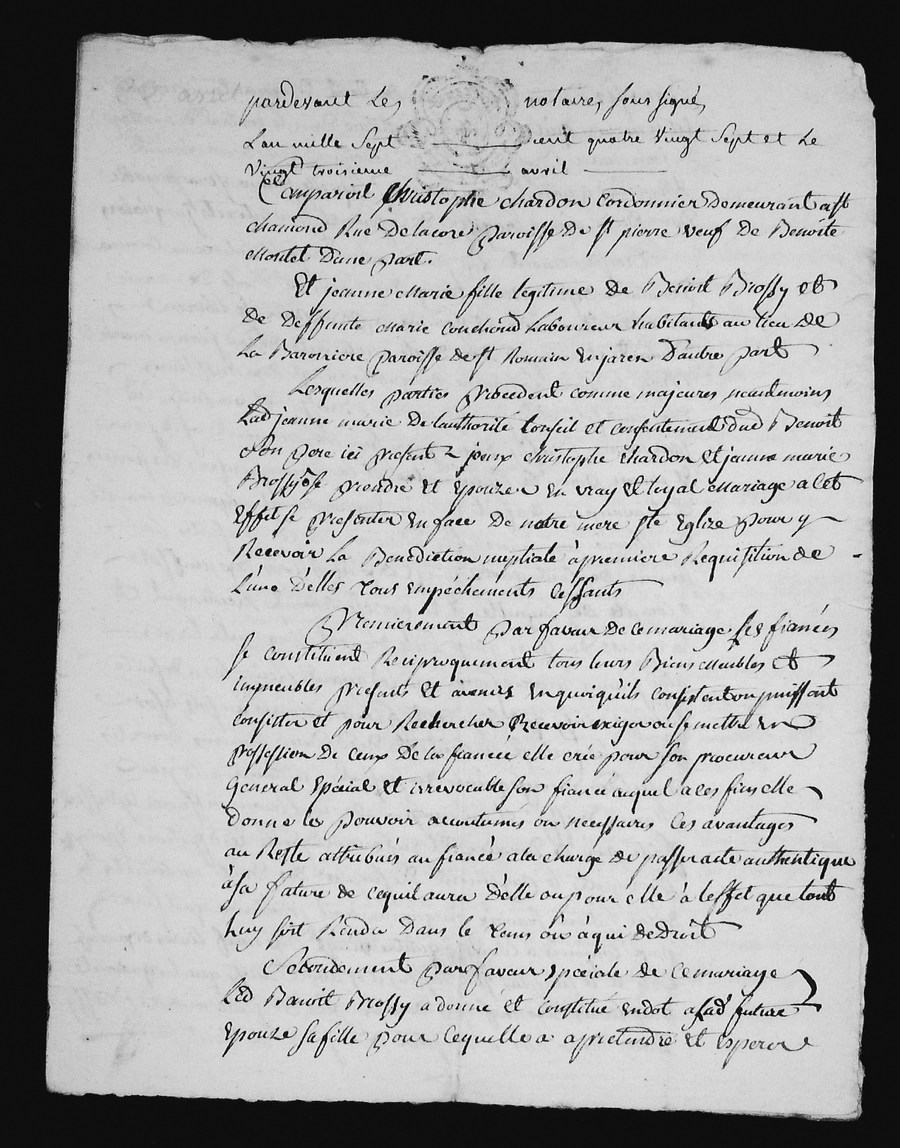 pardevant Les notaires sous signés
Lan mille Sept Cent quatre vingt Sept et Le
vingt troisieme avril
Comparoit Christophe chardon Cordonnier Demeurant a st
chamond Rue Delacore paroisse De st pierre veuf De Benoite
Montel Dune part.
Et jeanne Marie fille legitime de Benoit Brossy et
De Deffunte Marie couchoud Laboureur habitants au lieu De
La Baroniere paroisse de st Romain en jarez D'autre part
Lesquelles parties procedent comme majeures neantmoins
Lad jeanne marie De lauthorité Conseil et consentement dud Benoit
son pere ici present christophe chardon et jeanne marie
Brossy se prendre et epouzer en vray et loyal Mariage a cet
Effet se presenter en face De notre mere ste Eglize pour y
Recevoir La Benediction nuptiale à premiere Requisition de
L'une D'elles tous empéchements cessants
Premierement par faveur De ce mariage Les fiancés
se constituent Reciproquement tous leurs Biens Meubles et
immeubles presents et avenirs en quoi qu'ils consistent ou puissent
consister et pour Rechercher Recevoir exiger ou se mettre en
possession De ceux De la fiancée elle crée pour son procureur
General spécial et irrevocable son fiancé auquel a ces fins elle
donne les pouvoir accoutumés ou necessaires Ces avantages
au Reste attribués au fiancé a la charge de passer acte authentique
à sa future de ce quil aura D'elle ou pour elle à l'effet que tout
Luy soit Rendu Dans le tems où à qui De Droit
Secondement par faveur spéciale de ce mariage
Led Benoit Brossy a donné et constitué en dot a Lad future
Epouze sa fille pour ce quelle a a pretendre et esperer